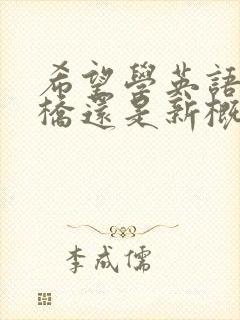 希望學英語
橋還是新概
李成儒